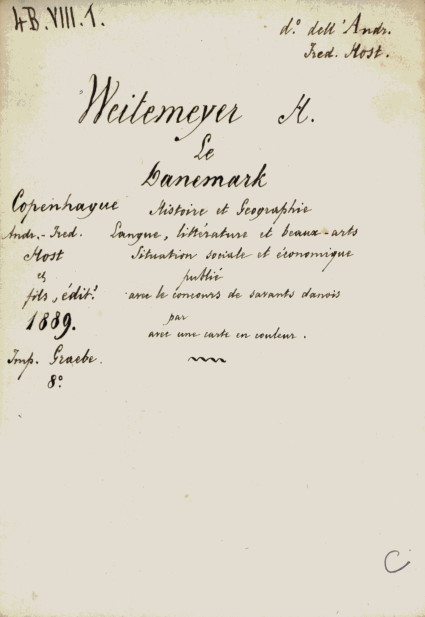 4B.VIII.1.
d.º dell'Andr.
Fred. Host.
Weitemeyer H.
Le
Danemark
Copenhague
Histoire et Geographie
Andr.-Fred.
Langue, littérature et beaux-arts
Host
Situation sociale et économique
et
publié
fils, édit.ʳ
avec le concours de savants danois
1889.
par
avec une carte en couleur.
Imp. Graebe.
8.º
C